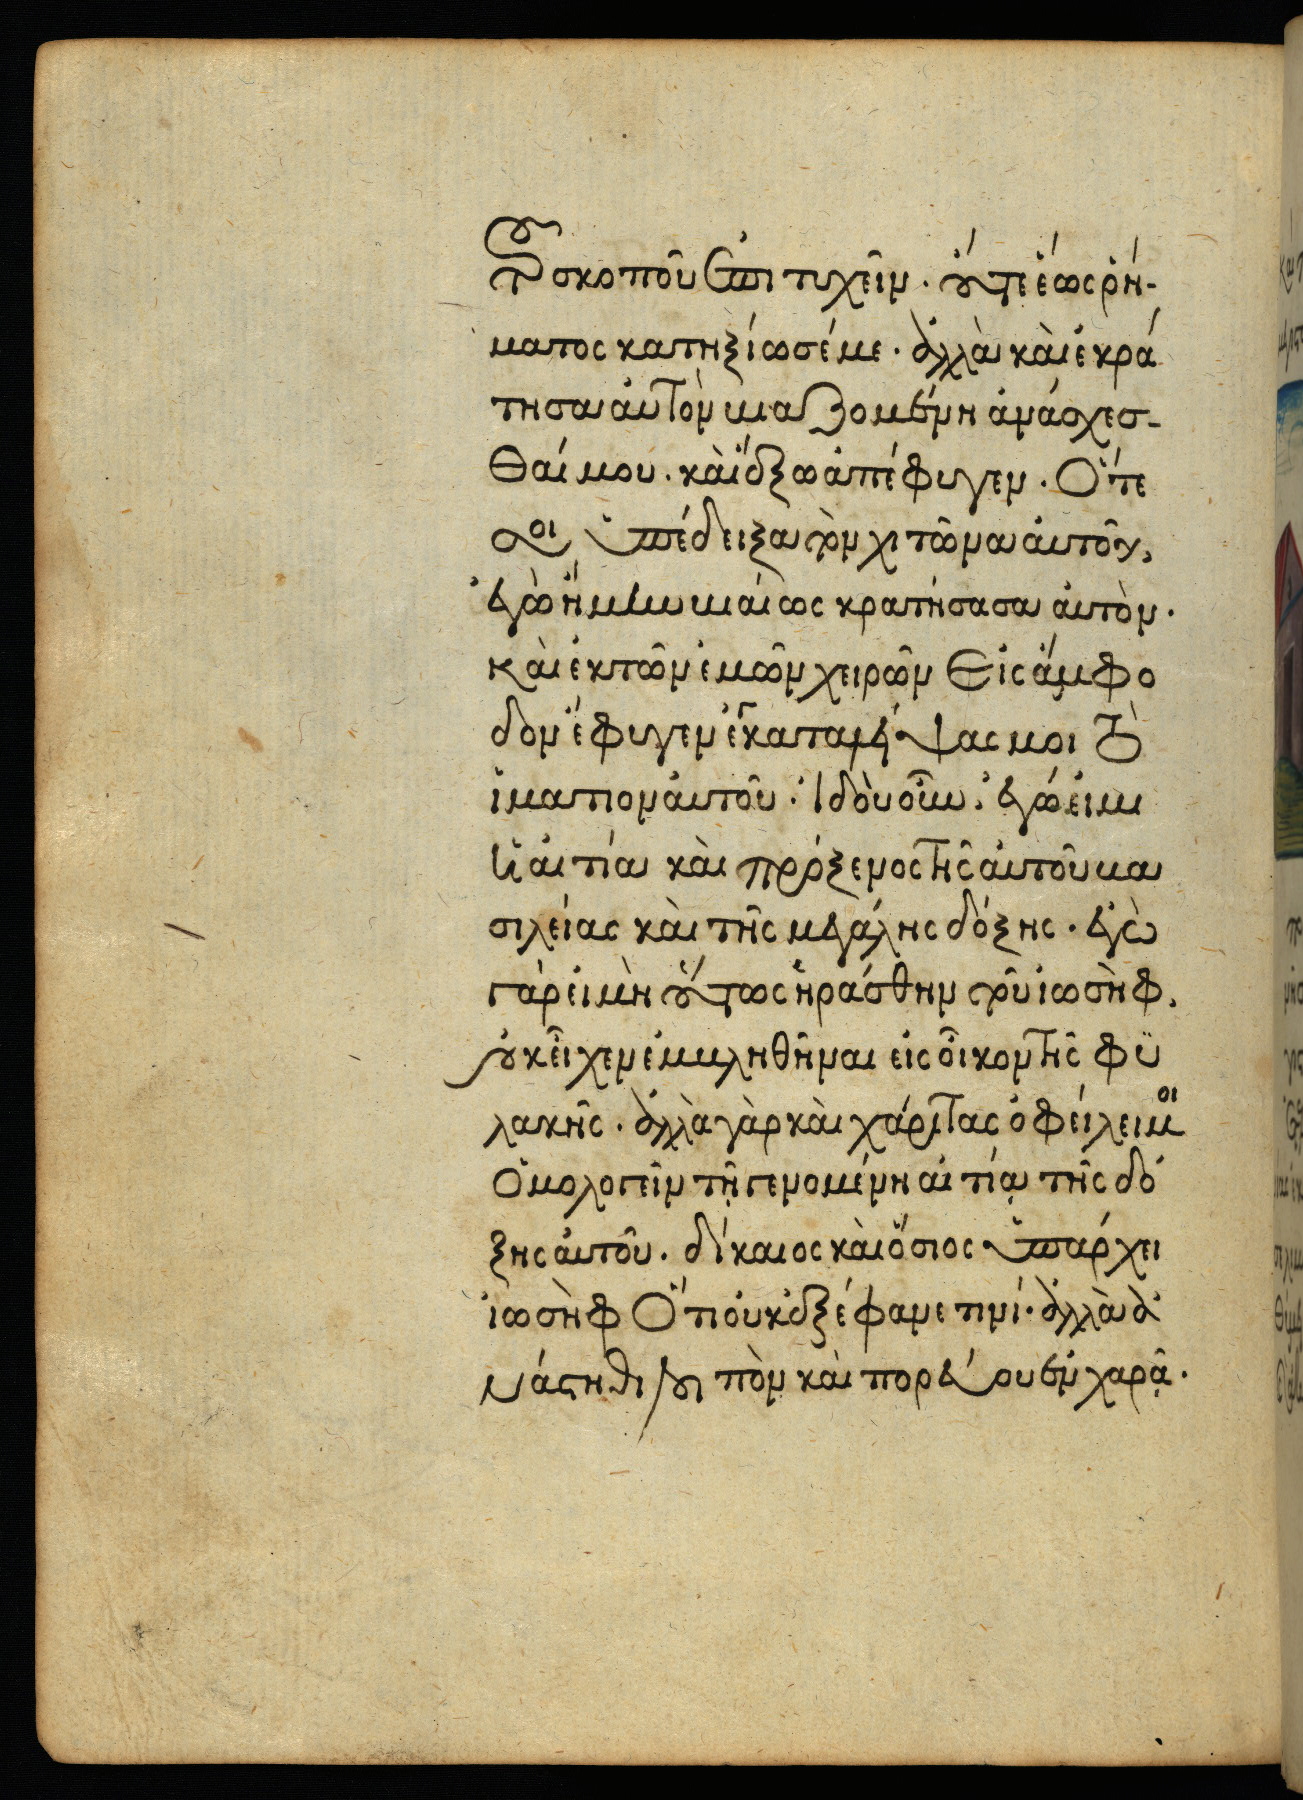 τοῦ σκοποῦ ἐπιτυχεῖν. οὔτε ἕως ῥή-
ματος κατηξίωσέ με. ἀλλὰ καὶ ἐκρά
τησα αὐτὸν βιαζομένη ἀνάσχεσ-
θαί μου. καὶ ἔξω ἀπέφυγεν. Ὅτε
σοι ὑπέδειξα τὸν χιτῶνα αὐτοῦ,
ἐγὼ ἤμην βιαίως κρατήσασα αὐτὸν.
καὶ ἐκ τῶν ἐμῶν χειρῶν εἰς ἄμφο
δον ἔφυγεν ἐγκαταλείψας μοι τὸ
ἱμάτιον αὐτοῦ. ἰδοὺ οὖν. ἐγώ εἰμι
ἡ αἰτία καὶ πρόξενος τῆς αὐτοῦ βα
σιλείας καὶ τῆς μεγάλης δόξης. ἐγὼ
γὰρ εἰ μὴ οὕτως ἠράσθην τοῦ ἰωσὴφ,
οὐκ εἶχεν ἐμβληθῆναι εἰς οἶκον τῆς φυ
λακῆς. ἀλλὰ γὰρ καὶ χάριτας ὀφείλει μοι
ὁμολογεῖν τῇ γενομένη αἰτίᾳ τῆς δό
ξης αὐτοῦ. δίκαιος καὶ ὅσιος ὑπάρχει
ἰωσὴφ ὅτι οὐκ ἐξέφανέ τινί. ἀλλὰ ἀ
νάστηθι λοιπὸν καὶ πορεύου ἐν χαρᾷ.